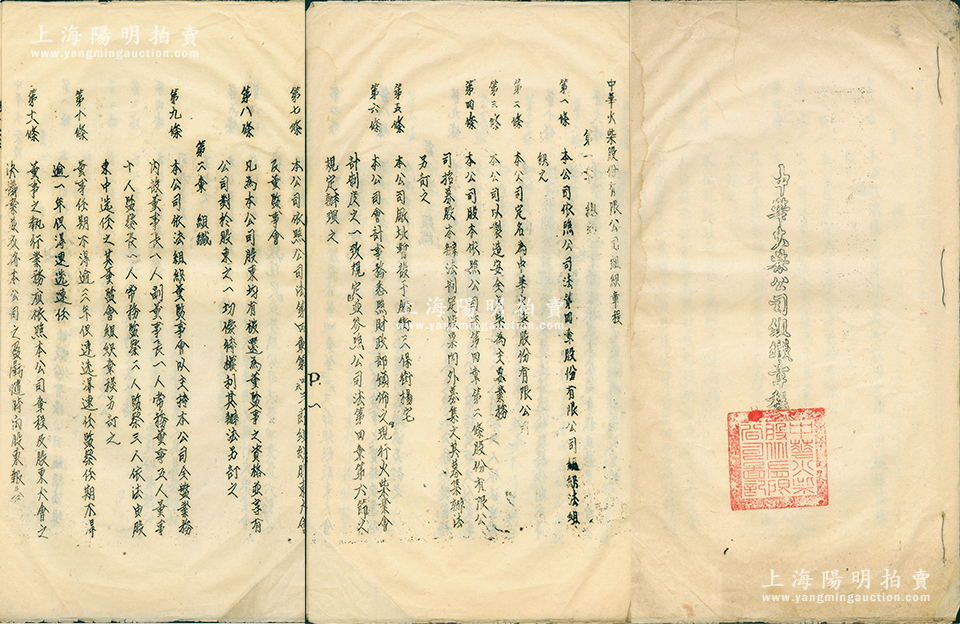 中華火柴公司組織章程
中華火柴股份有限公司圖記
中華火柴股份有限公司組織章程
第一章 總則
第一條 本公司依照公司法第四章股份有限公司組織法組
織之
第二條 本公司定名為中華火柴股份有限公司
第三條 本公司以製造安全火柴為主要業務
第四條 本公司股本依照公司法第四章第二條股份有限公
司招募股本辦法制定股票向外募集之其募集辦法
另訂之
第五條 本公司廠址暫設于 三條街楊宅
第六條 本公司會計事務悉照財政部頒佈之現行火柴業會
計制度之一致規定並參照公司法第四章第六節之
規定辦理之
第七條 本公司依照公司法第四章第 三節組織股東大會
及董監事會
第八條 凡為本公司股東均有被選為董監事之資格並享有
公司對於股東之一切條件權利其辦法另訂之
第二章 組織
第九條 本公司依法組織董監事會以主持本公司全盤業務
內設董事長一人副董事長一人常務董事五人董事
十人監察長一人常務監察二人監察三人依法由股
東中選任之其董監會組織章程另訂之
第十條 董事任期不得逾三年但連選得連任監察任期不得
逾一年但得連選連任
第十一條 董事之執行業務須依照本公司章程及股東大會之
決議
上海陽明拍賣
www.yangmingauction.com
上海陽明拍賣
www.yangmingauction.com
上海陽明拍賣
www.yangmingauction.com